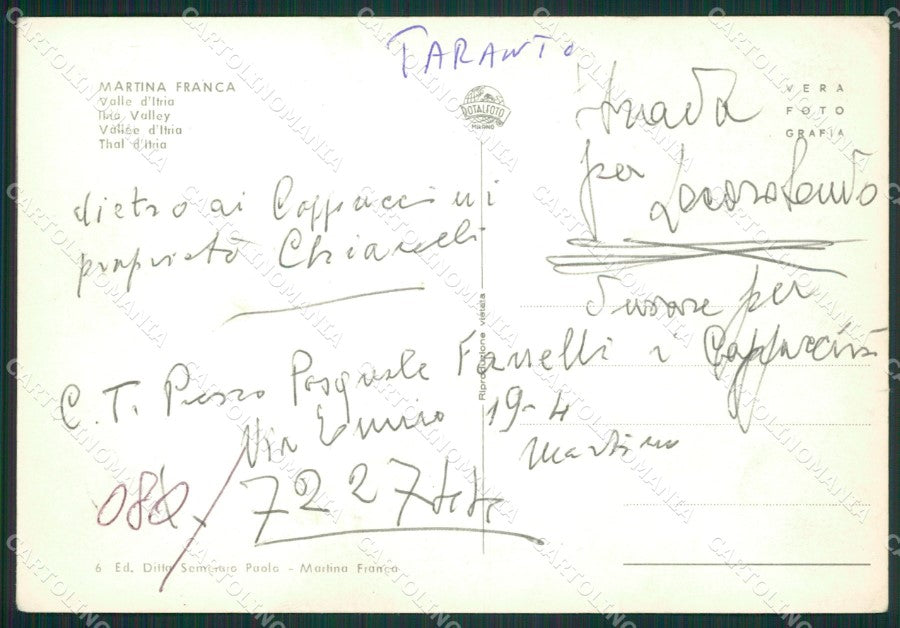 TARANTO
MARTINA FRANCA
Valle d'Itria
Itria Valley
Vallée d'Itria
Thal d'Itria
ROTALFOTO
MILANO
VERA
FOTO
GRAFIA
Strada
per
Locorotondo
dietro ai Cappuccini
proprietà Chiarelli
per
i Cappuccini
C. T. Pasquale Fanelli
Via 19-4
Martina
080
7227
Riproduzione vietata
6 Ed. Ditta Semeraro Paolo - Martina Franca
CARTOLINOMANIA